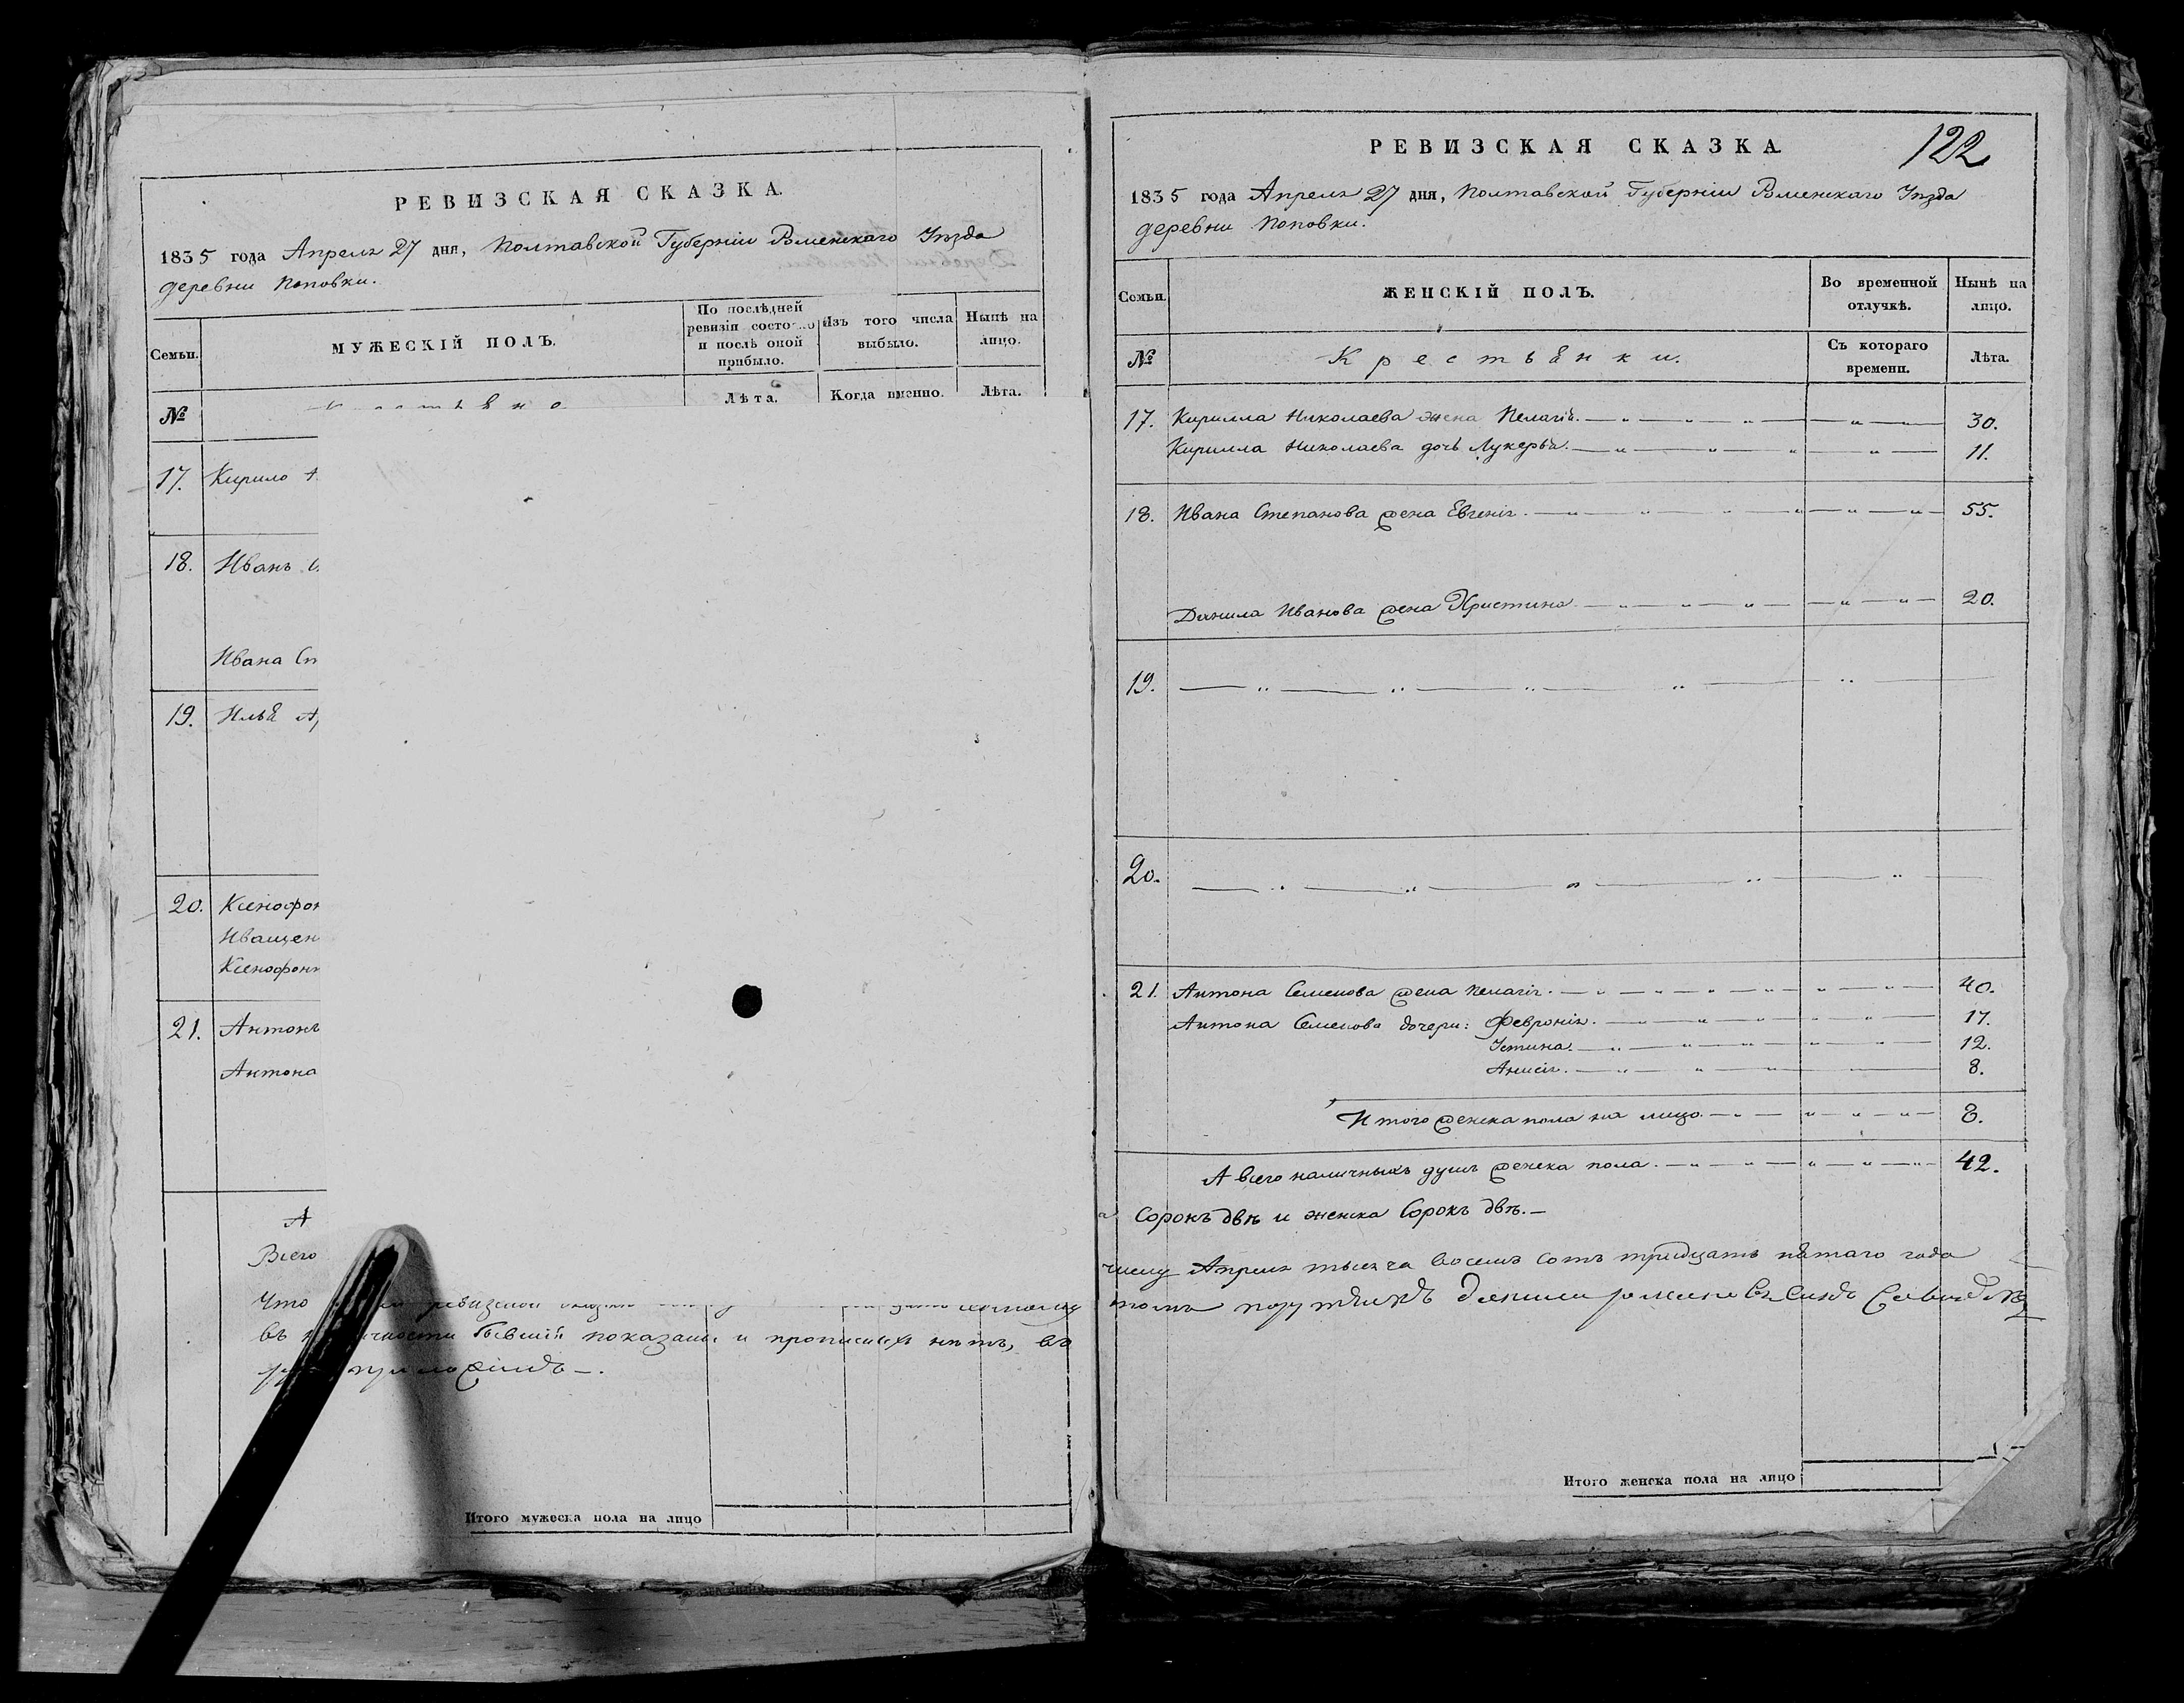 РЕВИЗСКАЯ СКАЗКА.
1835 года Апреля 27 дня, Полтавской Губерніи Роменскаго Уѣзда
деревни Поповки.
Семьи.
МУЖЕСКІЙ ПОЛЪ.
По послѣдней
ревизіи состояло
и послѣ оной
прибыло.
Изъ того числа
выбыло.
Нынѣ на
лицо.
№
Лѣта.
Когда именно.
Лѣта.
17. Кирило
18. Иванъ
Ивана Сп
19. Илья
20. Ксенофон
Иващен
Ксенофонт
21. Антонъ
Антона
А
Всего
Что ревизской
въ бывшій показаны и прописныхъ нѣтъ, въ
122
РЕВИЗСКАЯ СКАЗКА
1835 года Апреля 27 дня, Полтавской Губерніи Роменскаго Уѣзда
деревни Поповки.
Семьи.
ЖЕНСКІЙ ПОЛЪ.
Во временной
отлучкѣ.
Нынѣ на
лицо.
№
Крестьянки.
Съ котораго
времени.
Лѣта.
17. Кирилла Николаева жена Пелагія. 30.
Кирилла Николаева дочь Лукерья. 11.
18. Ивана Степанова жена Евгенія. 55.
Данила Иванова жена Христина. 20.
19.
20.
21. Антона Семенова жена Пелагія. 40.
Антона Семенова дочери: Февронія. 17.
Устина. 12.
Анисія. 8.
Итого женска пола на лицо 8.
А всего наличныхъ душъ женска пола. 42.
Сорокъ двѣ и женска Сорокъ двѣ.—
Апреля тысяча восемь сотъ тридцать пятаго года
Итого мужеска пола на лицо
Итого женска пола на лицо